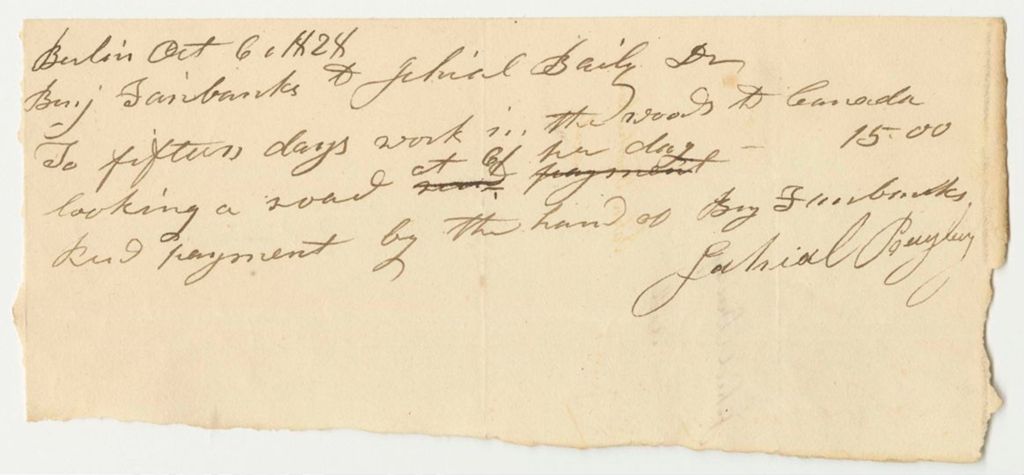 Berlin Oct 6, 1828
Benj Fairbanks to Jehial Baily Dr
To fifteen days work in the woods to Canada
looking a road at 6/ per day - 15.00
Recd payment by the hand of Benj Fairbanks.
Jahial Bayley